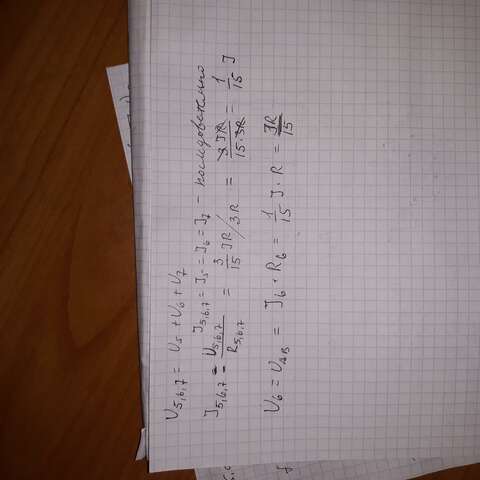 U5,6,7 = U5 + U6 + U7
J5,6,7 = J5 = J6 = J7 – последовательно
J5,6,7 = U5,6,7 / R5,6,7 = 3/15 JR / 3R = 3 JR / 15·3R = 1/15 J
U6 = UAB = J6 · R6 = 1/15 J · R = JR/15